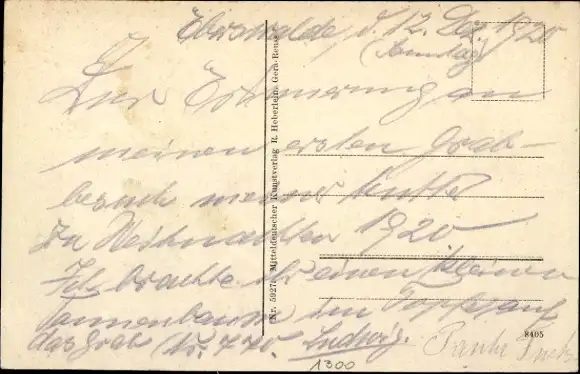 Eberswalde, d. 12. Dez. 1920
(Sonntag)
Zur Erinnerung an
meinen ersten Grab-
besuch meiner Mutter
zu Weihnachten 1920
Ich brachte ihr einen kleinen
Tannenbaum im Topf auf
das Grab (Nr. 770. Ludwig.
1300
Nr. 59271 Mitteldeutscher Kunstverlag R. Heberlein, Gera-Reuss
8405